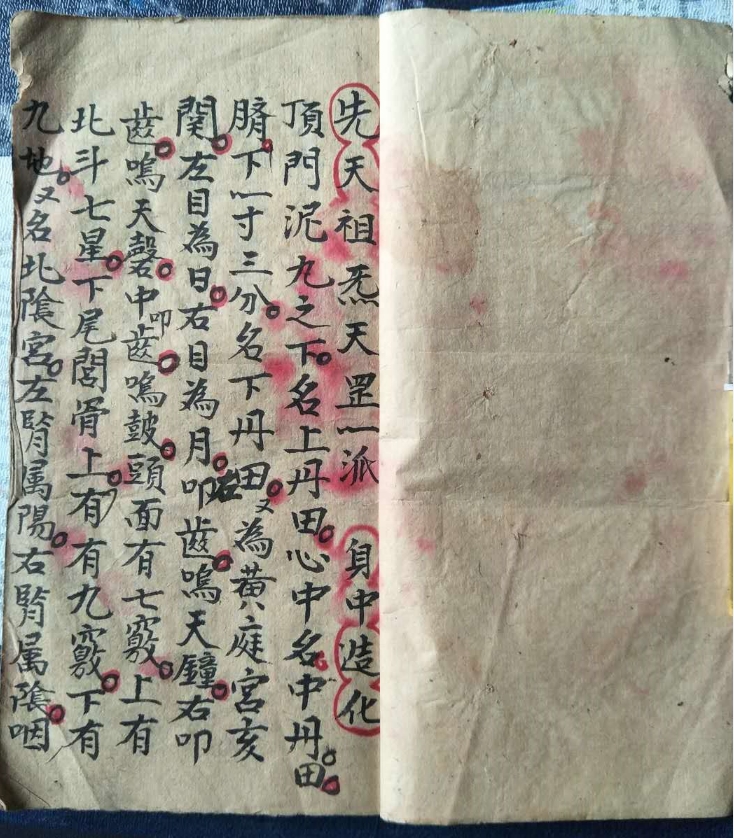 先天祖炁天罡一派　身中造化
頂門泥九之下名上丹田心中名中丹田
臍下一寸三分名下丹田又為黃庭宮亥
関左目為日右目為月叩齒鳴天鐘右叩
齒鳴天磬中叩齒鳴鼓頭面有七竅上有
北斗七星下尾閭骨上有有九竅下有
九地又名北陰宮左腎属陽右腎属陰咽